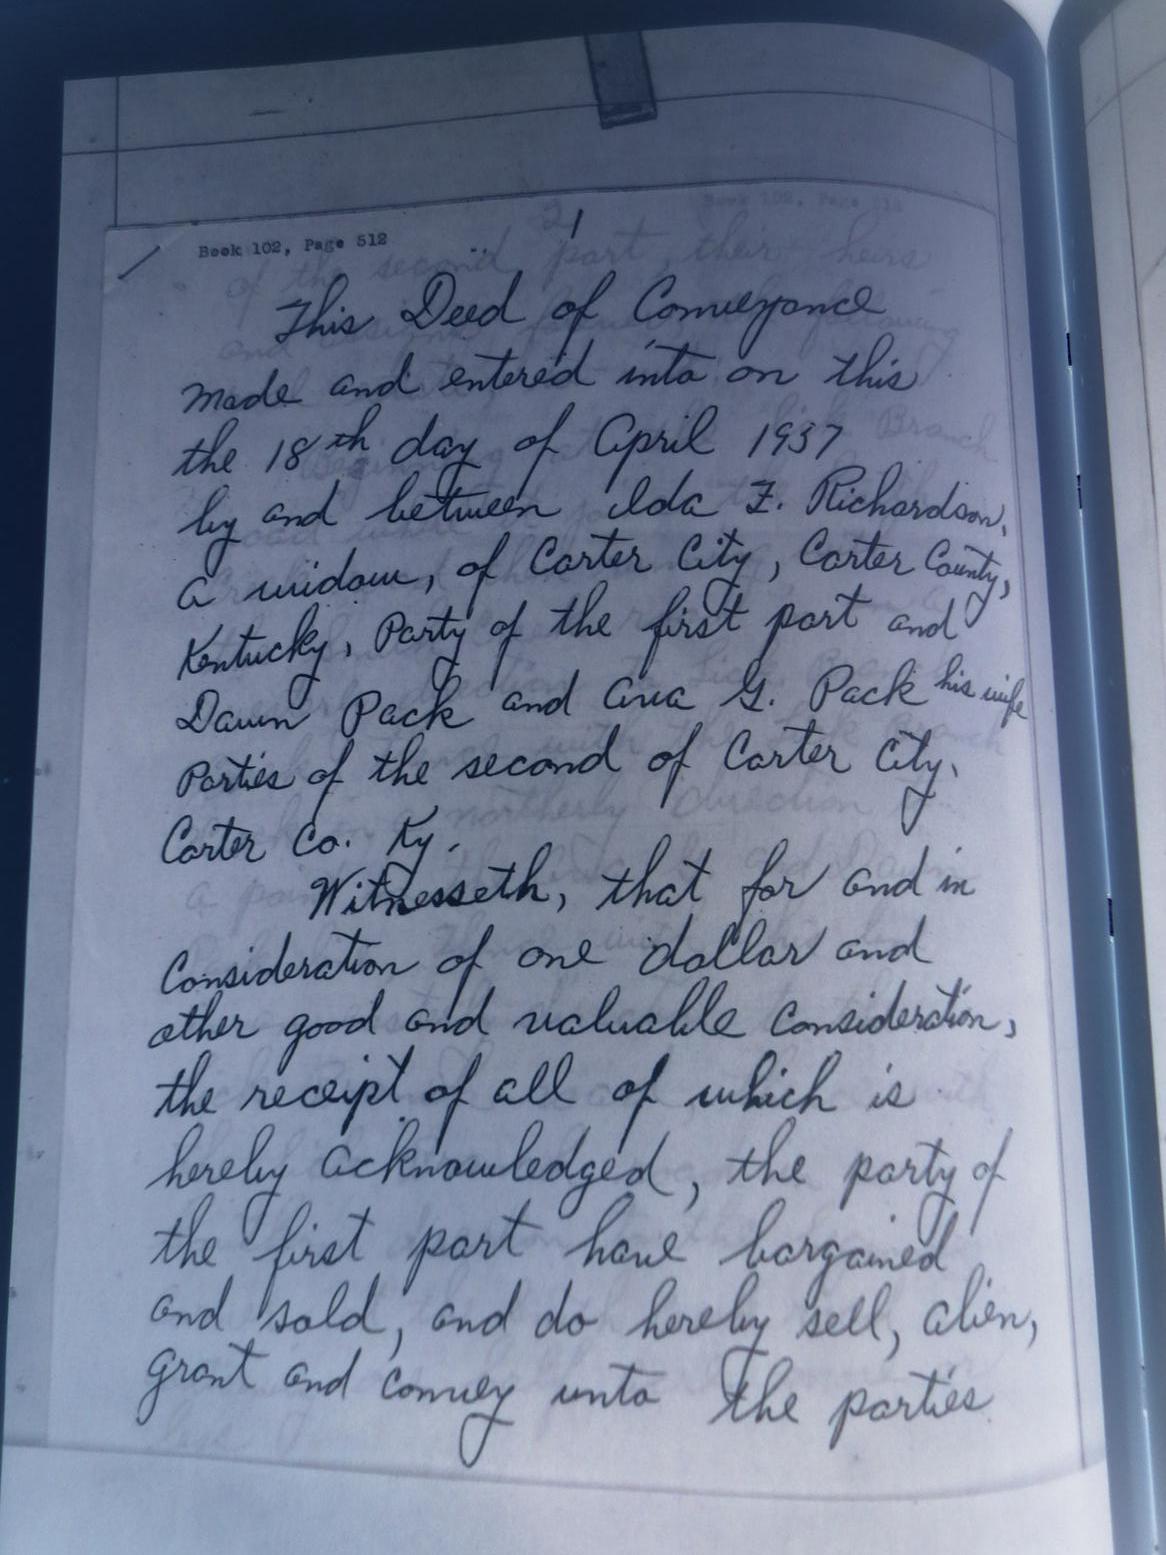 1
Book 102, Page 512
This Deed of Conveyance
made and entered into on this
the 18th day of April 1937
by and between Ida Z. Richardson,
a widow, of Carter City, Carter County,
Kentucky, Party of the first part and
Dawn Pack and Ava G. Pack his wife
Parties of the second of Carter City,
Carter Co. Ky.
Witnesseth, that for and in
Consideration of one dollar and
other good and valuable consideration,
the receipt of all of which is
hereby acknowledged, the party of
the first part have bargained
and sold, and do hereby sell, alien,
grant and convey unto the parties